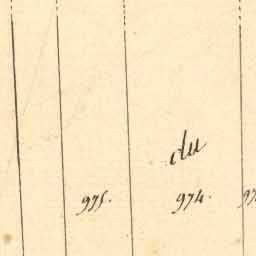 du
975. 974.